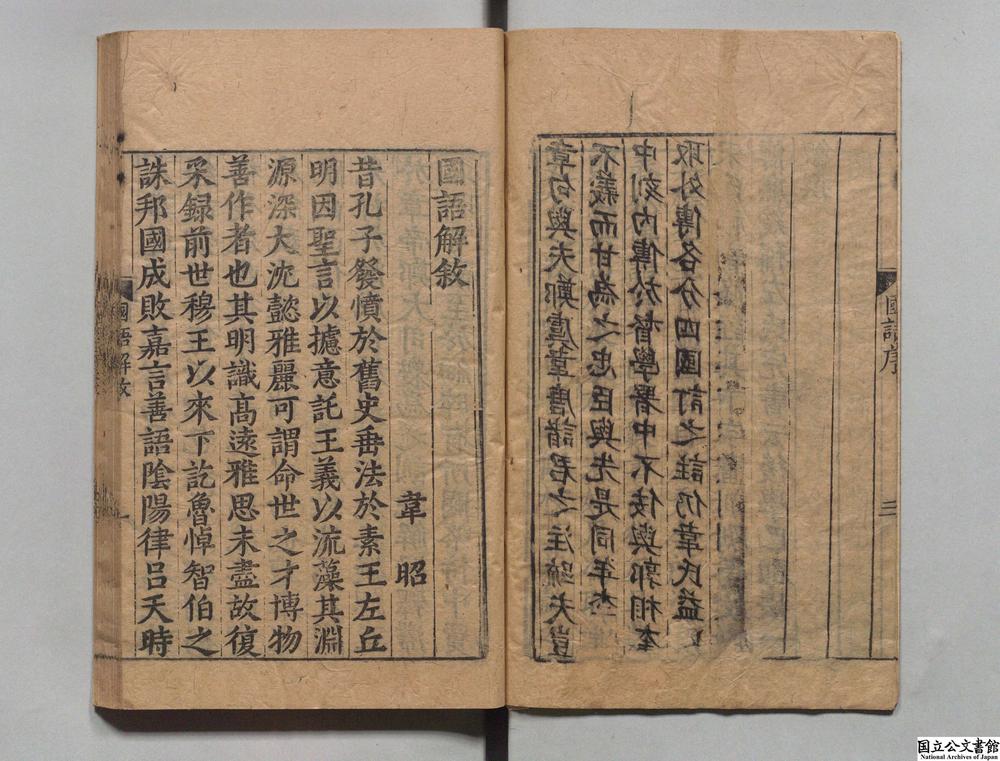 國語序
三
章句與夫鄭虞賈唐諸君之注疏夫豈
不義而甘為之忠臣與先是同年李
中刻內傳於督學署中不佞與郭相奎
取外傳各分四國訂之註仍韋氏益以
國語解敘
韋昭
昔孔子發憤於舊史垂法於素王左丘
明因聖言以攄意託王義以流藻其淵
源深大沈懿雅麗可謂命世之才博物
善作者也其明識高遠雅思未盡故復
采錄前世穆王以來下訖魯悼智伯之
誅邦國成敗嘉言善語陰陽律呂天時
國語解敘
一
国立公文書館
National Archives of Japan